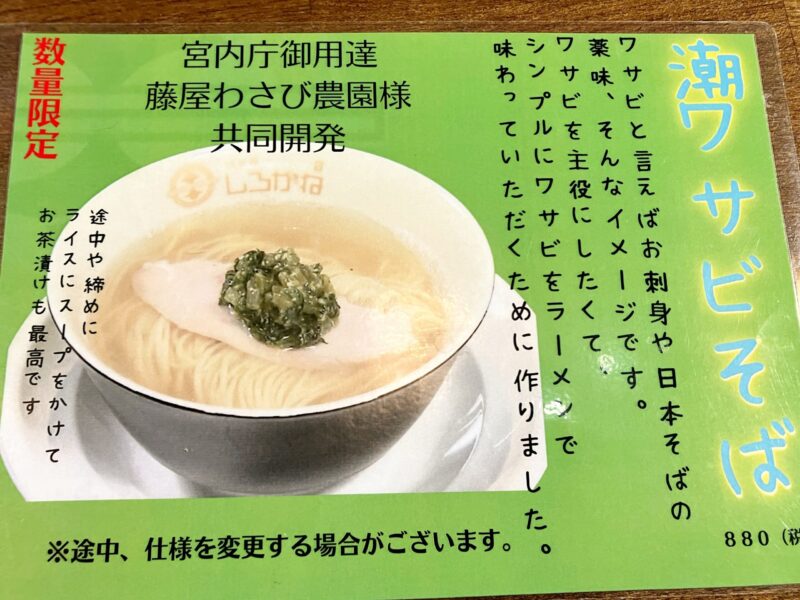 潮ワサビそば
ワサビと言えばお刺身や日本そばの
薬味、そんなイメージです。
ワサビを主役にしたくて、
シンプルにワサビをラーメンで
味わっていただくために作りました。
880（税
宮内庁御用達
藤屋わさび農園様
共同開発
数量限定
しろかね
途中や締めに
ライスにスープをかけて
お茶漬けも最高です
※途中、仕様を変更する場合がございます。